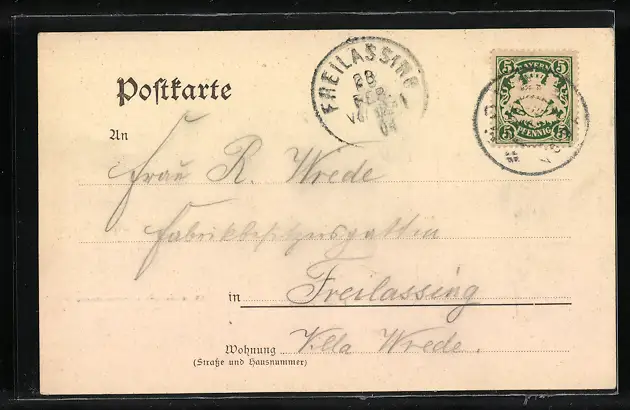 FREILASSING
28
FEB
BAYERN
5 5
5 PFENNIG 5
Postkarte
An
Frau R. Wrede
Fabrikbesitzersgattin
in Freilassing
Wohnung Villa Wrede.
(Straße und Hausnummer)